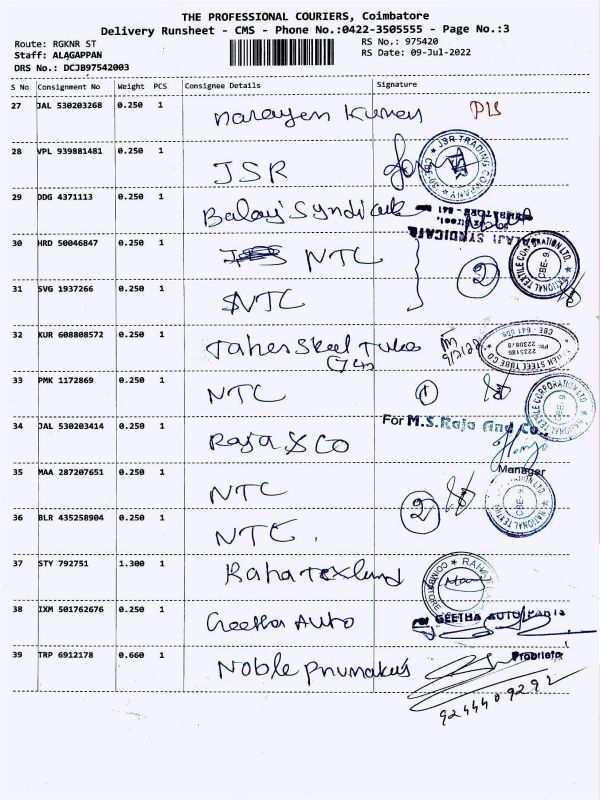 THE PROFESSIONAL COURIERS, Coimbatore
Delivery Runsheet - CMS - Phone No.:0422-3505555 - Page No.:3
Route: RGKNR ST
RS No.: 975420
Staff: ALAGAPPAN
RS Date: 09-Jul-2022
DRS No.: DCJB97542003
S No Consignment No Weight PCS Consignee Details Signature
27 JAL 530203268 0.250 1 narayen Kumar
28 VPL 939881481 0.250 1 JSR
JSR TRADING COMPANY
29 DDG 4371113 0.250 1 Balaji Syndicate
BALAJI SYNDICATE
30 HRD 50046847 0.250 1 NTC 2
NATIONAL TEXTILE CORPORATION LTD. CBE-9
31 SVG 1937266 0.250 1 NTC
32 KUR 608808572 0.250 1 Taher Steel Tubes
9/7/22
TAHER STEEL TUBE CO
33 PMK 1172869 0.250 1 NTC 1
NATIONAL TEXTILE CORPORATION LTD. CBE-9
34 JAL 530203414 0.250 1 Raja & CO
For M.S.Raja and Co.,
Manager
35 MAA 287207651 0.250 1 NTC
36 BLR 435258904 0.250 1 NTC. 2
NATIONAL TEXTILE LTD. CBE-9
37 STY 792751 1.300 1 Raha Texlund
COIMBATORE
38 IXM 501762676 0.250 1 Geetha Auto
For GEETHA AUTO
39 TRP 6912178 0.660 1 Noble pnumakus
9244409292